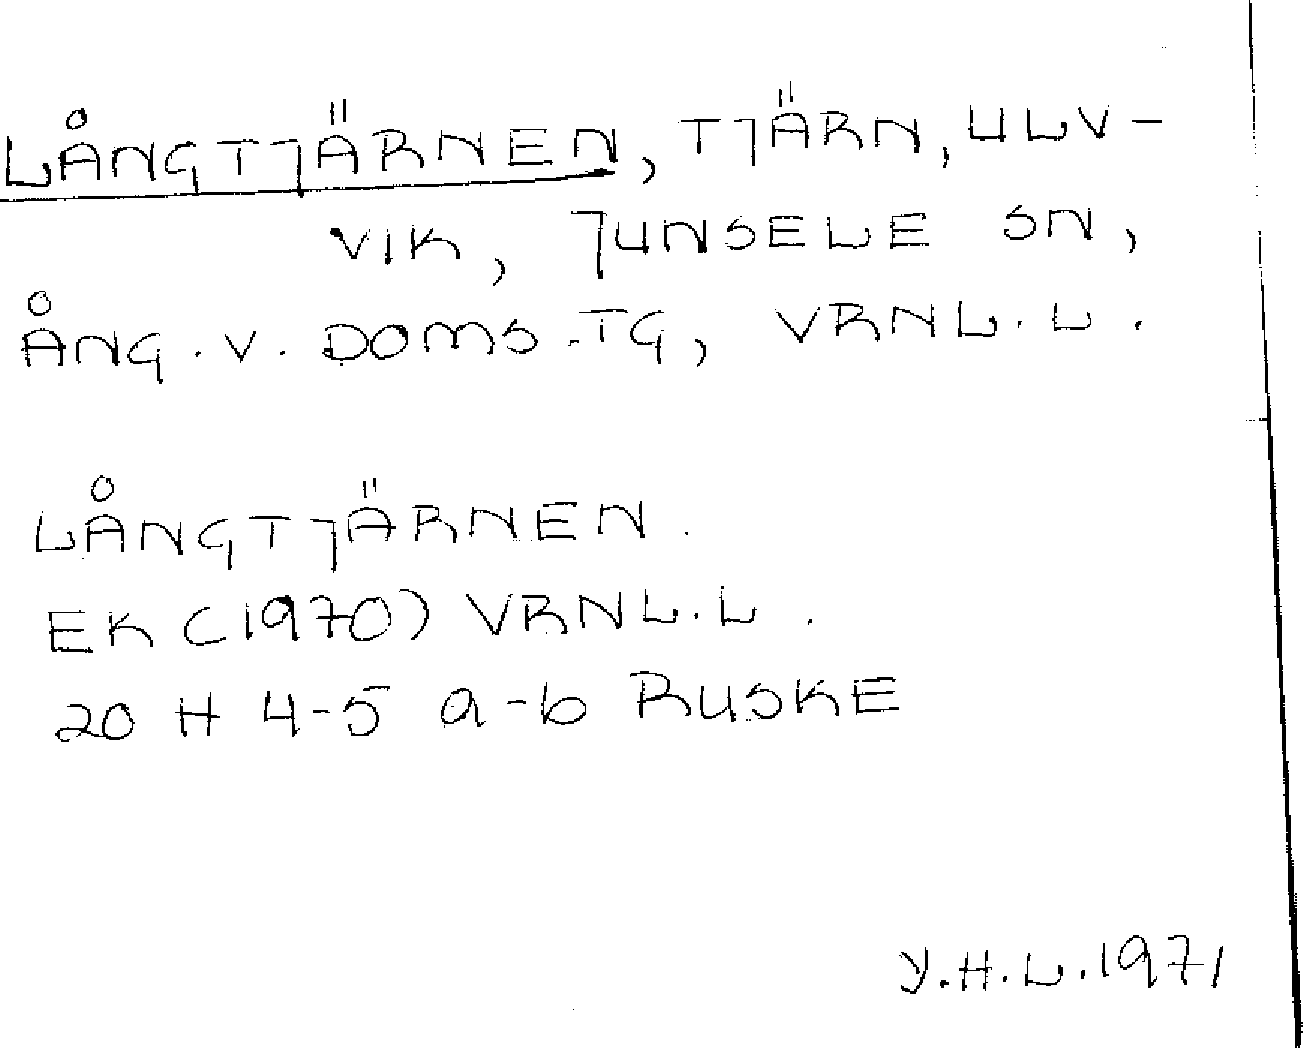 LÅNGTJÄRNEN, TJÄRN, ULV-
VIK, JUNSELE SN,
ÅNG. V. DOMS.TG, VRNL. L.
LÅNGTJÄRNEN.
EK (1970) VRNL. L.
20 H 4-5 a-b RUSKE
Y.H.L. 1971